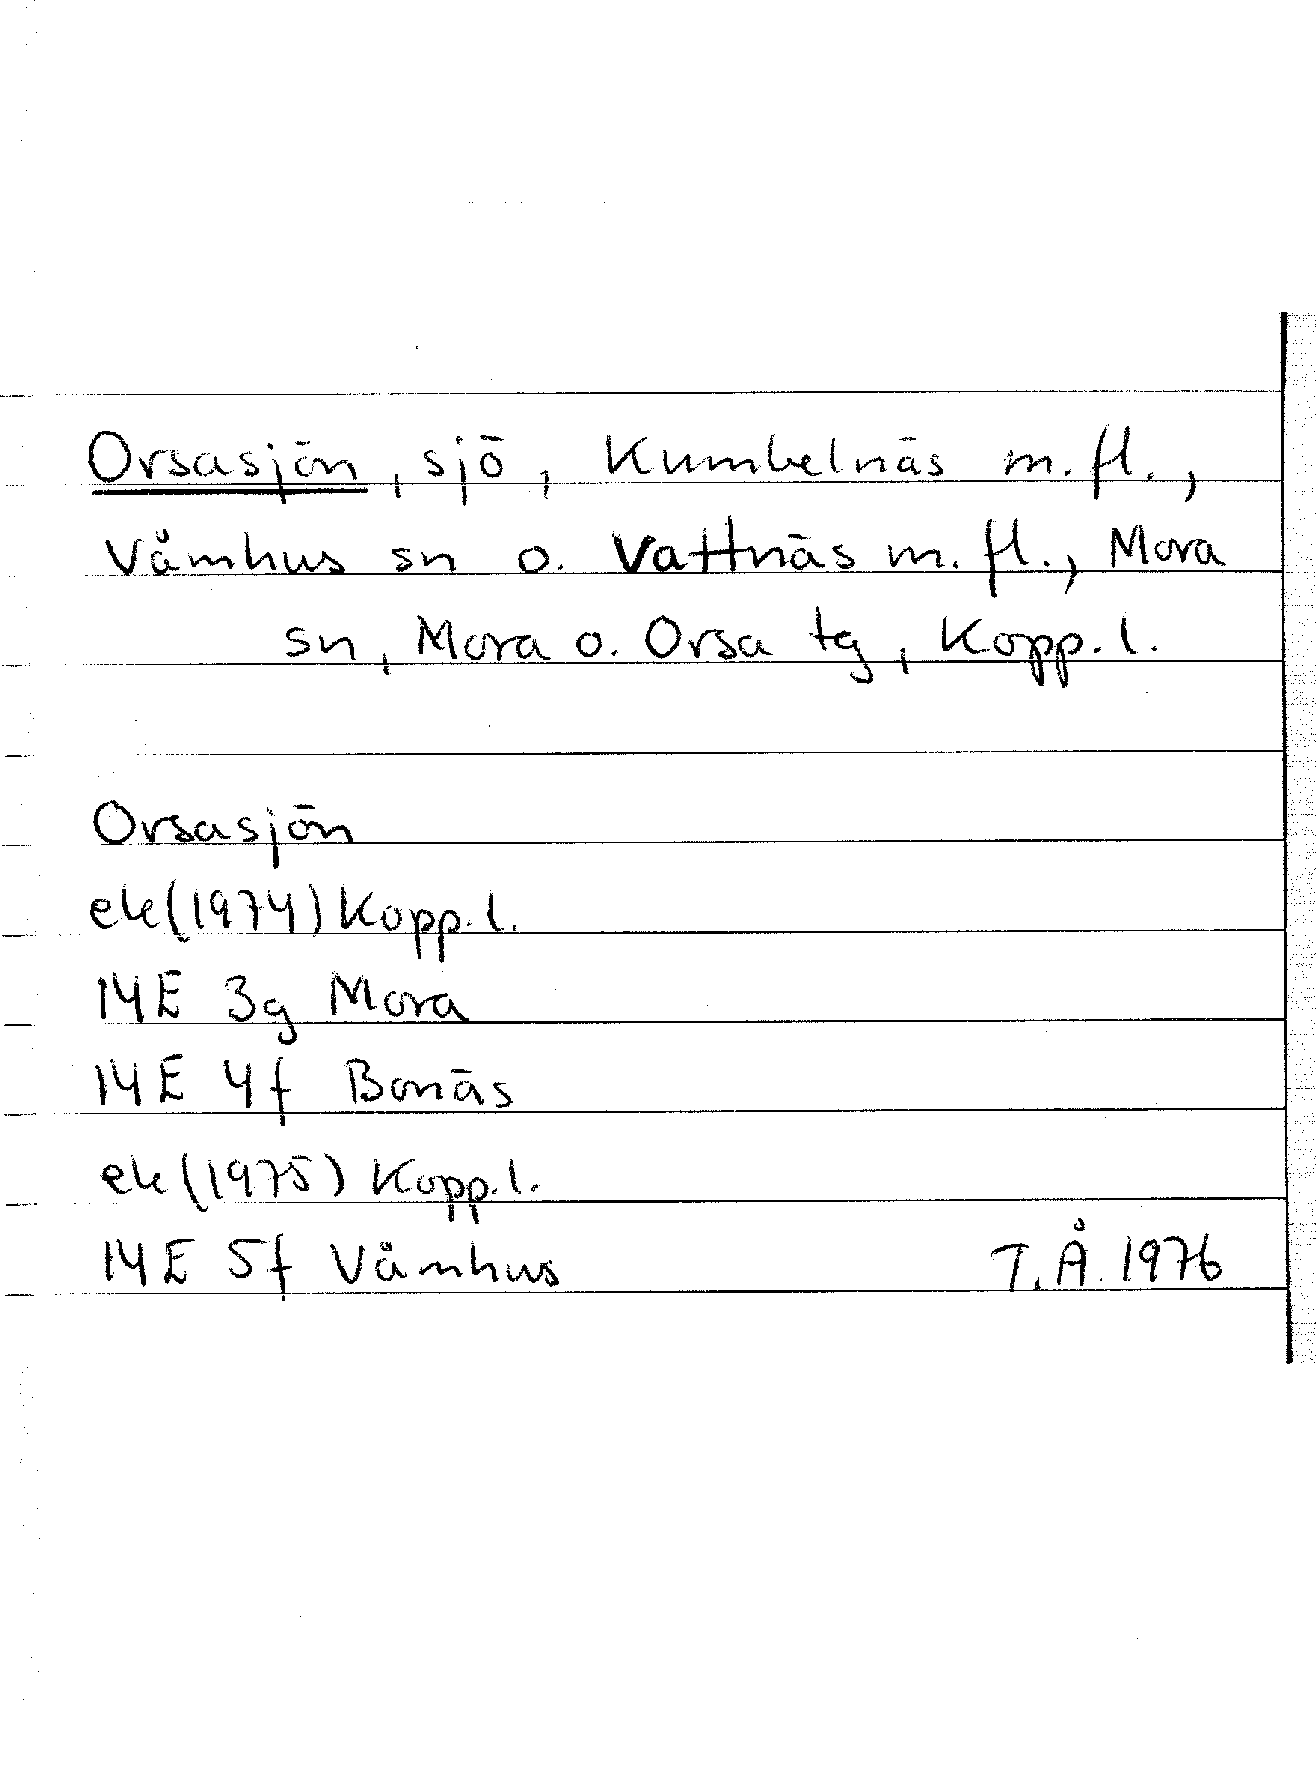 Orsasjön, sjö, Kumbelnäs m.fl.,
Våmhus sn o. Vattnäs m.fl., Mora
sn, Mora o. Orsa tg, Kopp.l.
Orsasjön
ek(1974) Kopp.l.
14E 3g Mora
14E 4f Bonäs
ek(1975) Kopp.l.
14E 5f Våmhus T.Å. 1976